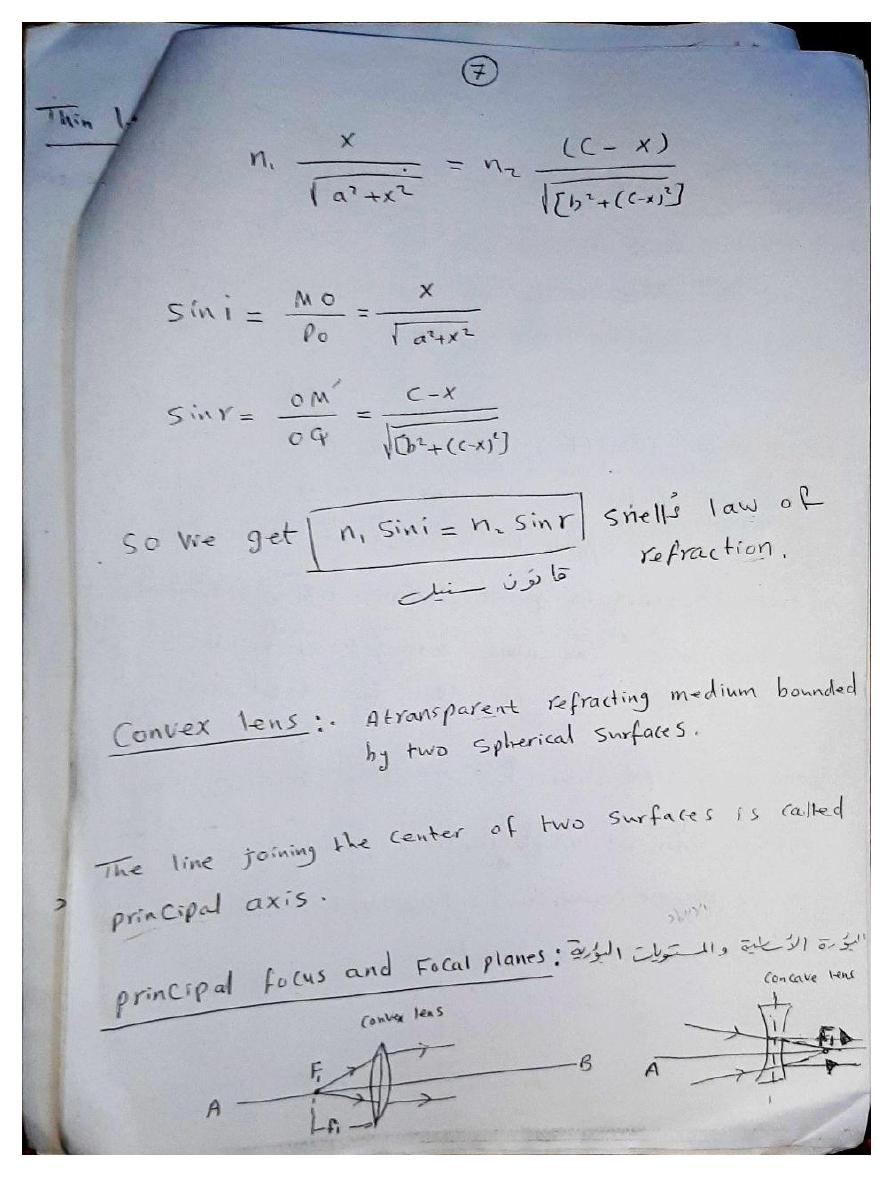 7
Thin
n₁ x / √a²+x² = n₂ (C - x) / √[b²+(C-x)²]
Sin i = MO / PO = x / √a²+x²
Sin r = OM′ / OQ = C-x / √[b²+(C-x)²]
So We get n₁ Sin i = n₂ Sin r Snell's law of
refraction.
قانون سنيل
Convex lens :. A transparent refracting medium bounded
by two Spherical Surfaces.
The line joining the center of two surfaces is called
principal axis.
principal focus and Focal planes : البؤرة الأساسية والمستويات البؤرية
Convex lens
Concave lens
A F₁ f₁ B
A F₁